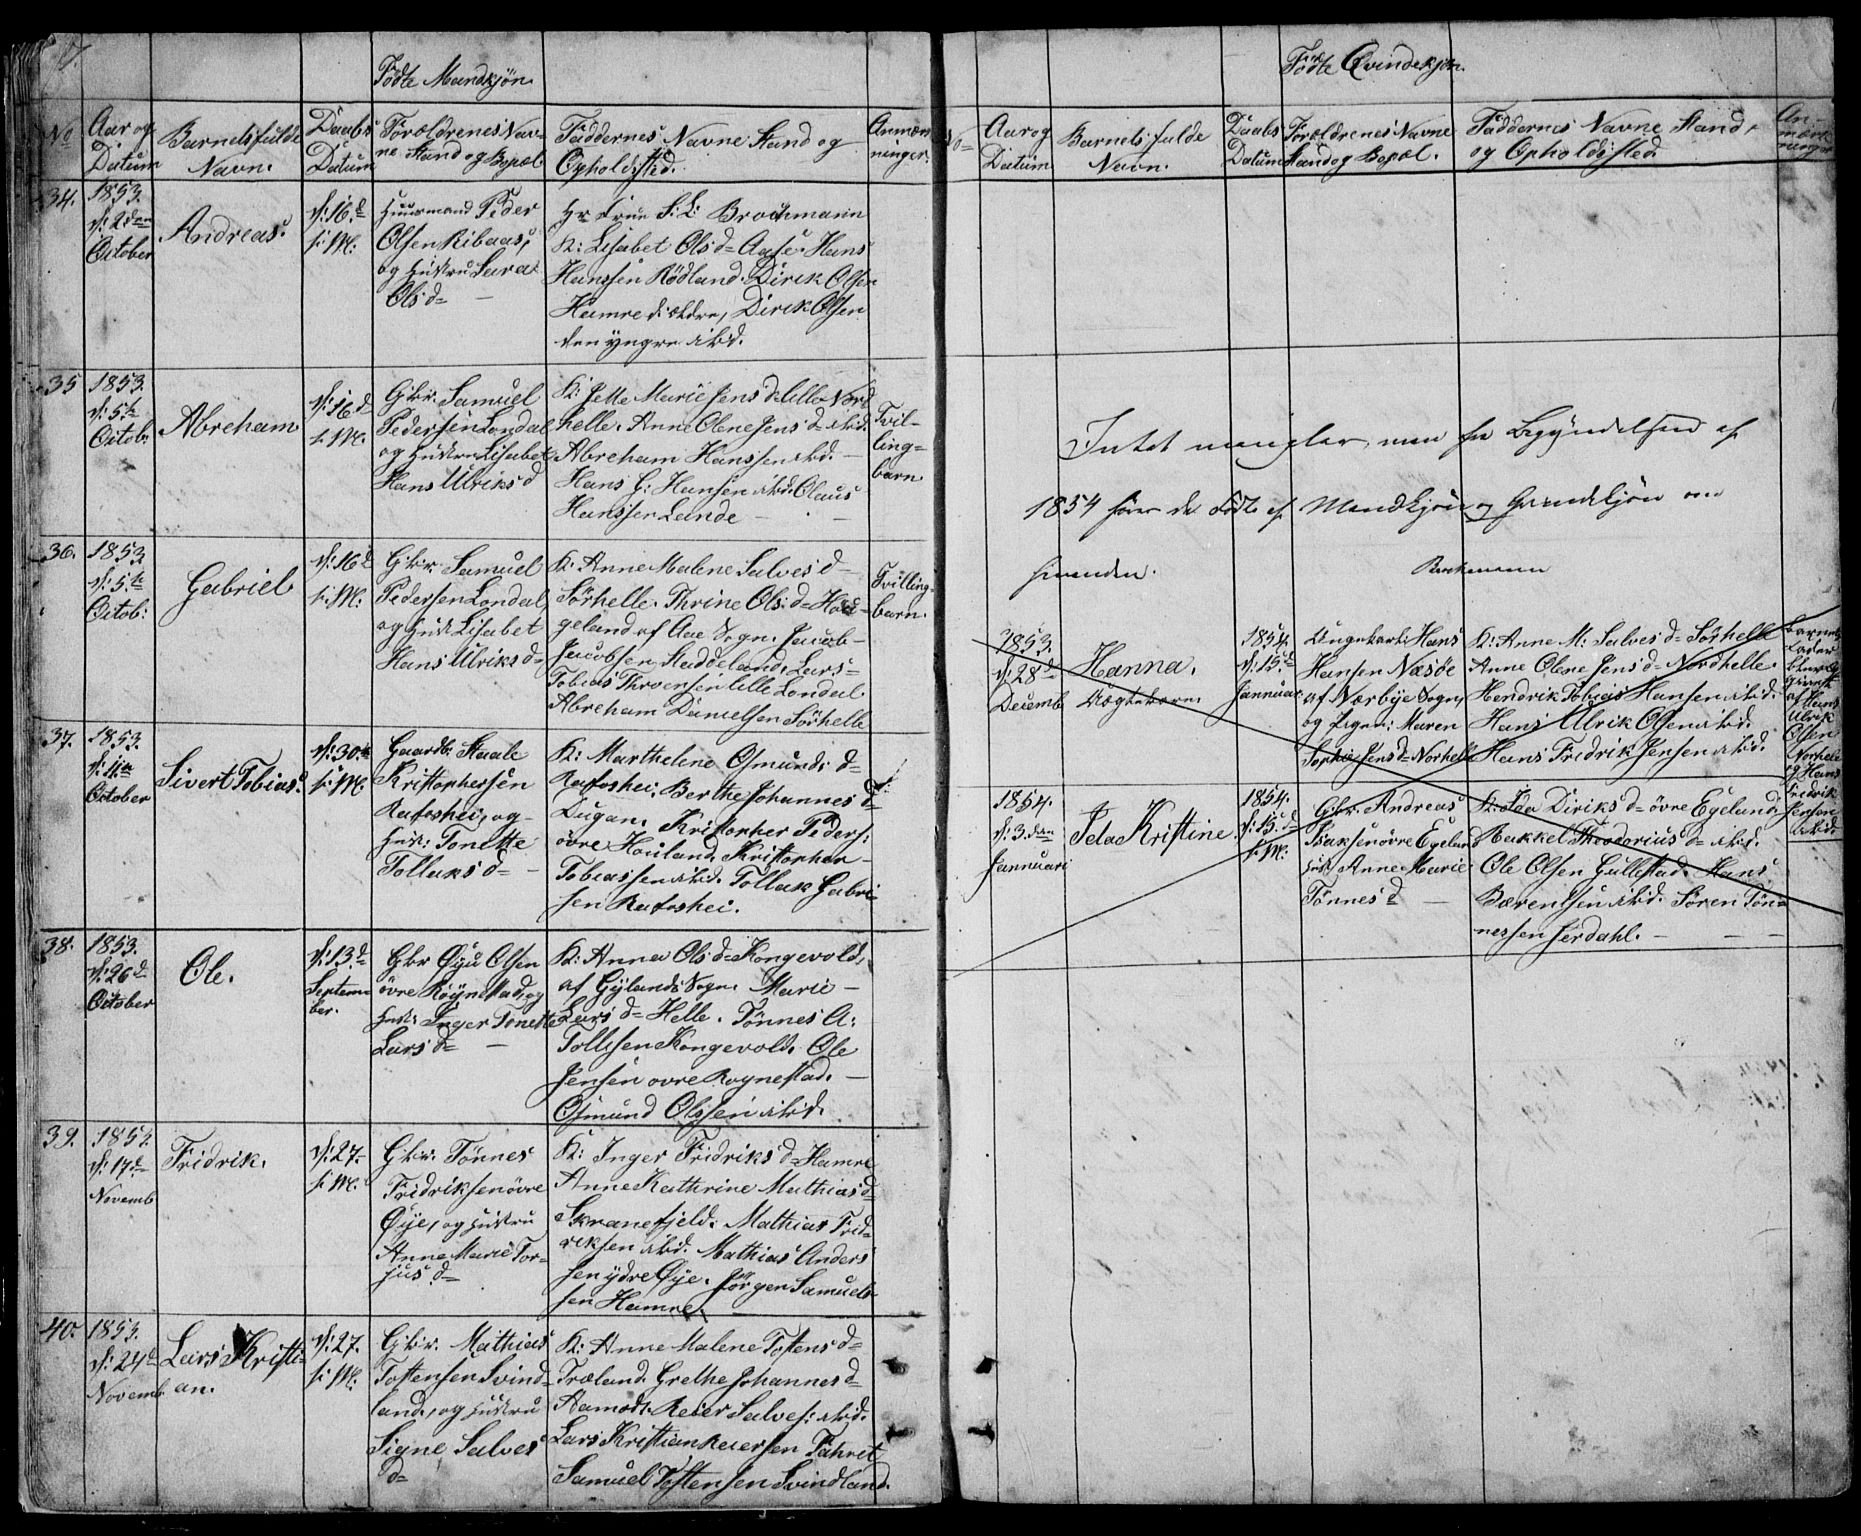 Fødte Mandkjøn.
No
Aar og Datum
Barnets fulde Navn.
Daabs Datum
Forældrenes Navne Stand og Bopæl
Faddernes Navne Stand og Opholdssted.
Anmærkninger.
34.
1853.
d: 2den
October
Andreas.
d: 16.d
s: M:
Huusmand Peder
Olsen Ribaas,
og Hustru Sara
Ols d=
Hr Frue S: L: Brochmann
K: Lisabet Ols d= Aase. Hans
Hanssen Rödland. Dirik Olsen
Hamre d: ældre, Dirik Olsen
den yngre ibid.
35
1853.
d: 5te
Octob:
Abreham
d: 16 d
s: M:
Gbr: Samuel
Pedersen Londal
og Hustru Lisabet
Hans Ulriks d
K: Jette Marie Jens d= lille Nord
helle. Anne Olene Jens d= ibid.
Abreham Hanssen ibid. –
Hans G: Hansen ibid. Olaus
Hanssen Lande –
Tvil-
ling=
barn.
36.
1853
d: 5te
Octob:
Gabriel
d: 16 d
s: M:
Gbr: Samuel
Pedersen Londal,
og Hust: Lisabet
Hans Ulriks d=
K: Anne Malene Salves d –
Sörhelle. Thrine Ols: d=
geland af Aae Sogn. Jacob –
Jacobsen Haddeland. Lars –
Tobias Thronsen lille Londal
Abreham Danielsen Sörhelle
Tvilling-
barn.
37.
1853.
October
Sivert Tobias.
d: 30te
s: M:
Gaardbr: Staale
Kristophersen
Rafoshei, og –
Hust: Tonette
Tollaks d= –
K: Martheline Osmunds d=
Rafoshei. Berthe Johannes d=
Dugan. Kristopher Peders:
övre Houland. Kristopher –
Tobiassen ibid. Tollak Gabri-
sen Rafoshei.
38.
1853.
d: 26 d
October
Ole.
d: 13.d
Septem-
ber.
Gbr Öyu Olsen
övre Röynestad, og
Hust: Inger Tonette
Lars d= –
K: Anna Ols d= Kongevold,
af Gylands Sogn. Marie –
Lars d= Helle. Tönnes A:
Tollssen Kongevold. Ole
Jensen ovre Roynestad. –
Osmund Olssen ibid.
39.
d: 17 d=
Novemb
Fridrik.
d: 27.
s: M:
Gbr: Tönnes
Fridriksen övre
Öye, og Hustru
Anne Marie Tor-
jus d=
K: Inger Fridriks d= Hamre
Anne Kathrine Mathias d=
Skranefjeld. Mathias Frid-
riksen ibid. Mathias Anders
sen ydre Öye. Jörgen Samuel-
sen Hamre.
40.
1853.
d: 24d
Novemb
Lars Kristi-
an.
d: 27.
s: M:
Gbr: Mathias
Tostensen Svind-
land, og Hustru
Signe Salves
d=
K: Anne Malene Tostens d=
Træland. Grethe Johannes d=
Aamodt. Reier Salves: ibid.
Lars Kristian Reiersen
Samuel Tostensen Svindland.
Fødte Qvindekjøn.
No=
Aar og Datum
Barnets fulde Navn.
Daabs Datum
Forældrenes Navne Stand og Bopæl.
Faddernes Navne Stand, og Opholdssted.
Anmærkninger
Intet mangler, men fra Begyndelsen af
1854 føres de Fødte af Mandkjøn og Qvindekjøn om
hinanden.
Brochmann
1853.
d: 28d=
Decemb
Hanna.
Uægtebarn.
1854.
d: 15d=
Januar
Ungekarl: Hans
Hansen Næsöe
af Nærböe Sogn,
og Pigen: Maren
Sophie Jens d= Norhelle
K: Anne M: Salves d= Sörhelle
Anne Olene Jens d= Nordhelle.
Hendrik Tobias Hansen ibid.
Hans Ulrik Olsen ibid.
Hans Fridrik Jensen ibid.
Barnets
Fader
blev
af Hans
Ulrik
Olsen
Norhelle
og Hans
Fridrik
Jensen
ibid.
1854.
d: 3.den
Januari
Jela Kristine
1854.
d: 15.d=
s: M:
Gbr: Andreas
Isaksen övre Egeland
Hust: Anne Marie
Tönnes d= –
K: Lea Diriks d= övre Egeland.
Rakkel Theodorius d= ibid.
Ole Olsen Gullestad. Hans
Bærentsen ibid. Sören Tön-
nessen Sirdahl. –